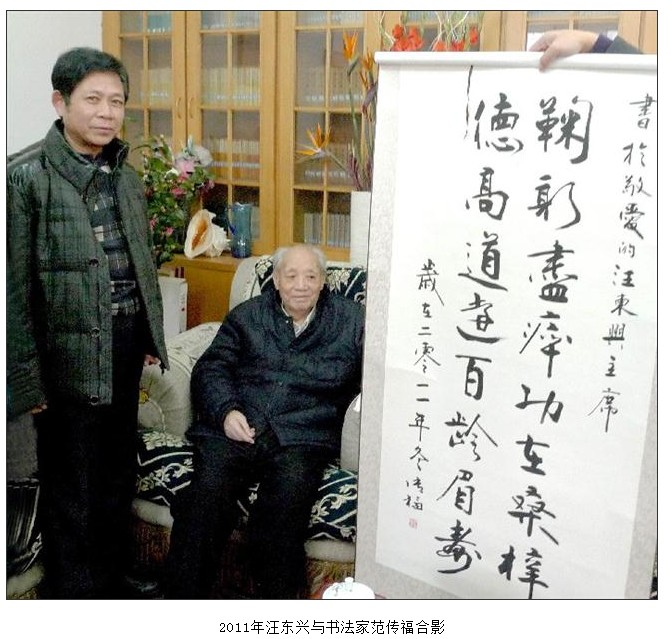 書於敬愛的汪東興主席
鞠躬盡瘁功在桑梓
德高道遠百齡眉壽
歲在二零一一年冬傳福
2011年汪东兴与书法家范传福合影